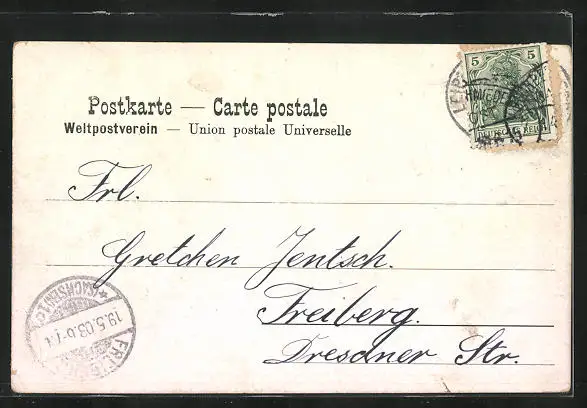 Postkarte — Carte postale
Weltpostverein — Union postale Universelle
5 5
DEUTSCHES REICH
Frl.
Gretchen Jentsch.
Freiberg.
Dresdner Str.
(SACHSEN) 1
19.5.03.6-7